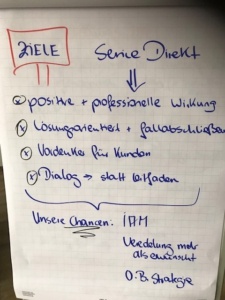 ZIELE
Service Direkt
⇓
ⓧ positive + professionelle Wirkung
ⓧ Lösungsorientiert + fallabschließen
ⓧ Vordenker für Kunden
ⓧ Dialog → statt Leitfaden
Unsere Chancen: IAM
Veredelung mehr
als erwünscht
O.B. Strategie